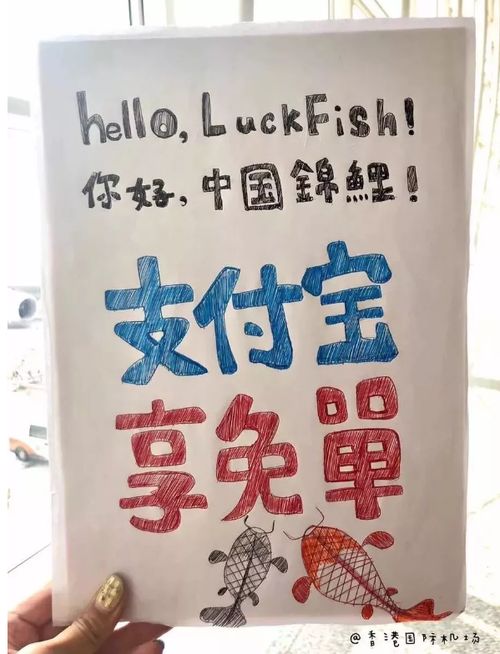 hello, LuckFish!
你好,中国錦鯉!
支付宝
享免單
@香港国际机场